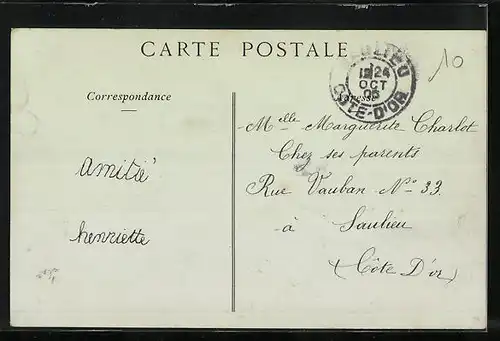 CARTE POSTALE
SAULIEU
12 24
OCT
05
COTE-D'OR
10
Correspondance
Adresse
amitié
henriette
Melle Marguerite Charlot
Chez ses parents
Rue Vauban No 33.
à Saulieu
(Côte D'or)